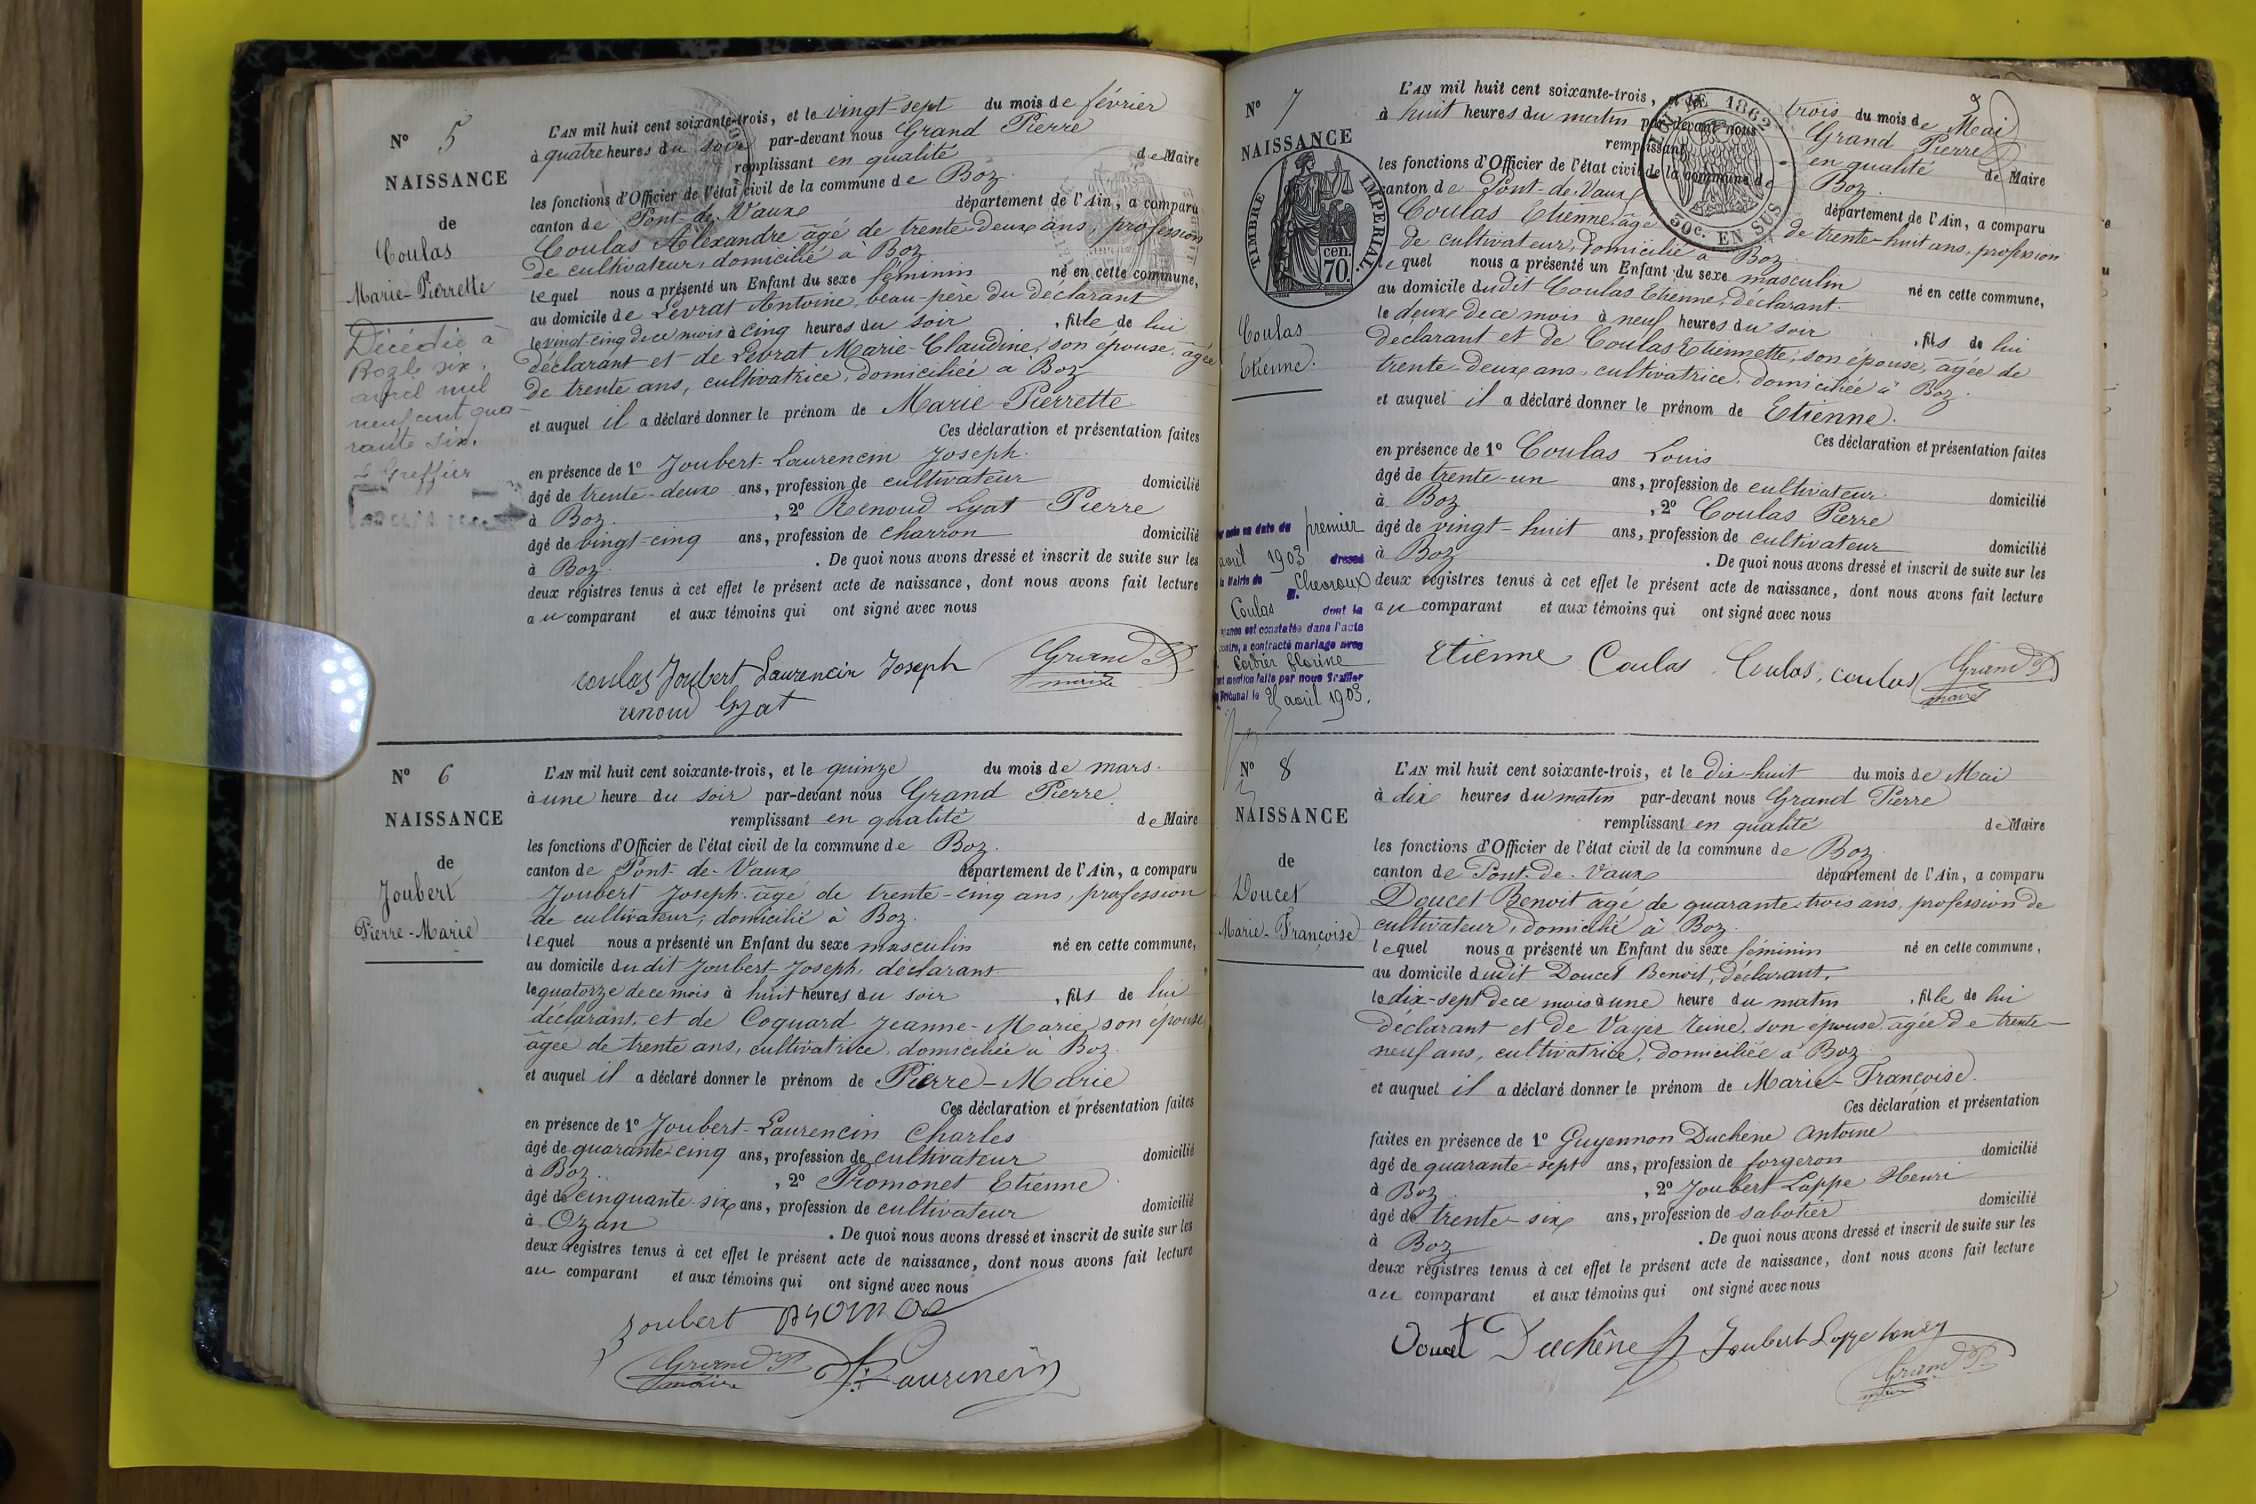 N° 5
NAISSANCE
de
Coulas
Marie-Pierrette
Décédée à
Boz le six
avril mil
neuf cent qua-
rante six.
Le Greffier
L'AN mil huit cent soixante-trois, et le vingt-sept du mois de février
à quatre heures du soir par-devant nous Grand Pierre
remplissant en qualité de Maire
les fonctions d'Officier de l'état civil de la commune de Boz.
canton de Pont-de-Vaux département de l'Ain, a comparu
Coulas Alexandre âgé de trente-deux ans, profession
de cultivateur, domicilié à Boz
lequel nous a présenté un Enfant du sexe féminin né en cette commune,
au domicile de Levrat Antoine, beau-père du déclarant
le vingt-cinq de ce mois à cinq heures du soir, fille de lui
déclarant et de Levrat Marie-Claudine, son épouse, âgée
de trente ans, cultivatrice, domiciliée à Boz
et auquel il a déclaré donner le prénom de Marie-Pierrette
Ces déclaration et présentation faites
en présence de 1° Joubert-Laurencin Joseph.
âgé de trente-deux ans, profession de cultivateur domicilié
à Boz. , 2° Renoud Lyat Pierre
âgé de vingt-cinq ans, profession de charron domicilié
à Boz. . De quoi nous avons dressé et inscrit de suite sur les
deux registres tenus à cet effet le présent acte de naissance, dont nous avons fait lecture
au comparant et aux témoins qui ont signé avec nous
coulas Joubert Laurencin Joseph Grand P.
maire
renoud Lyat
N° 6
NAISSANCE
de
Joubert
Pierre-Marie
L'AN mil huit cent soixante-trois, et le quinze du mois de mars.
à une heure du soir par-devant nous Grand Pierre
remplissant en qualité de Maire
les fonctions d'Officier de l'état civil de la commune de Boz.
canton de Pont-de-Vaux département de l'Ain, a comparu
Joubert Joseph âgé de trente-cinq ans, profession
de cultivateur, domicilié à Boz.
lequel nous a présenté un Enfant du sexe masculin né en cette commune,
au domicile dudit Joubert Joseph, déclarant
le quatorze de ce mois à huit heures du soir, fils de lui
déclarant, et de Coquard Jeanne-Marie, son épouse
âgée de trente ans, cultivatrice, domiciliée à Boz.
et auquel il a déclaré donner le prénom de Pierre-Marie
Ces déclaration et présentation faites
en présence de 1° Joubert-Laurencin Charles
âgé de quarante-cinq ans, profession de cultivateur domicilié
à Boz. , 2° Promonet Etienne
âgé de cinquante-six ans, profession de cultivateur domicilié
à Ozan . De quoi nous avons dressé et inscrit de suite sur les
deux registres tenus à cet effet le présent acte de naissance, dont nous avons fait lecture
au comparant et aux témoins qui ont signé avec nous
Joubert
Grand P. Laurencin
maire
N° 7
NAISSANCE
TIMBRE IMPERIAL
cen. 70.
Coulas
Etienne.
1862
30c. EN SUS
L'AN mil huit cent soixante-trois, et le trois du mois de Mai
à huit heures du matin par-devant nous Grand Pierre
remplissant en qualité de Maire
les fonctions d'Officier de l'état civil de la commune de Boz.
canton de Pont-de-Vaux département de l'Ain, a comparu
Coulas Etienne âgé de trente-huit ans, profession
de cultivateur, domicilié à Boz.
lequel nous a présenté un Enfant du sexe masculin né en cette commune,
au domicile dudit Coulas Etienne, déclarant.
le deux de ce mois à neuf heures du soir, fils de lui
déclarant et de Coulas Etiennette, son épouse, âgée de
trente-deux ans, cultivatrice, domiciliée à Boz.
et auquel il a déclaré donner le prénom de Etienne.
Ces déclaration et présentation faites
en présence de 1° Coulas Louis
âgé de trente-un ans, profession de cultivateur domicilié
à Boz , 2° Coulas Pierre
âgé de vingt-huit ans, profession de cultivateur domicilié
à Boz . De quoi nous avons dressé et inscrit de suite sur les
deux registres tenus à cet effet le présent acte de naissance, dont nous avons fait lecture
au comparant et aux témoins qui ont signé avec nous
acte en date du premier
avril 1903 dressé
la Mairie de Chevroux
Coulas dont la
est constatée dans l'acte
contre, a contracté mariage avec
Cordier florine
mention faite par nous Greffier
Tribunal le 25 avril 1903.
Etienne Coulas . Coulas . coulas Grand P.
maire
N° 8
NAISSANCE
de
Doucet
Marie-Françoise
L'AN mil huit cent soixante-trois, et le dix-huit du mois de Mai
à dix heures du matin par-devant nous Grand Pierre
remplissant en qualité de Maire
les fonctions d'Officier de l'état civil de la commune de Boz
canton de Pont-de-Vaux département de l'Ain, a comparu
Doucet Benoit âgé de quarante-trois ans, profession de
cultivateur, domicilié à Boz.
lequel nous a présenté un Enfant du sexe féminin né en cette commune,
au domicile dudit Doucet Benoit, déclarant.
le dix-sept de ce mois à une heure du matin, fille de lui
déclarant et de Vayer Reine, son épouse âgée de trente-
neuf ans, cultivatrice, domiciliée à Boz
et auquel il a déclaré donner le prénom de Marie-Françoise.
Ces déclaration et présentation
faites en présence de 1° Guyennon Duchène Antoine
âgé de quarante-sept ans, profession de forgeron domicilié
à Boz. , 2° Joubert Lappe Henri
âgé de trente-six ans, profession de sabotier domicilié
à Boz . De quoi nous avons dressé et inscrit de suite sur les
deux registres tenus à cet effet le présent acte de naissance, dont nous avons fait lecture
au comparant et aux témoins qui ont signé avec nous
Doucet Duchêne Joubert Lappe henry
Grand P.
maire